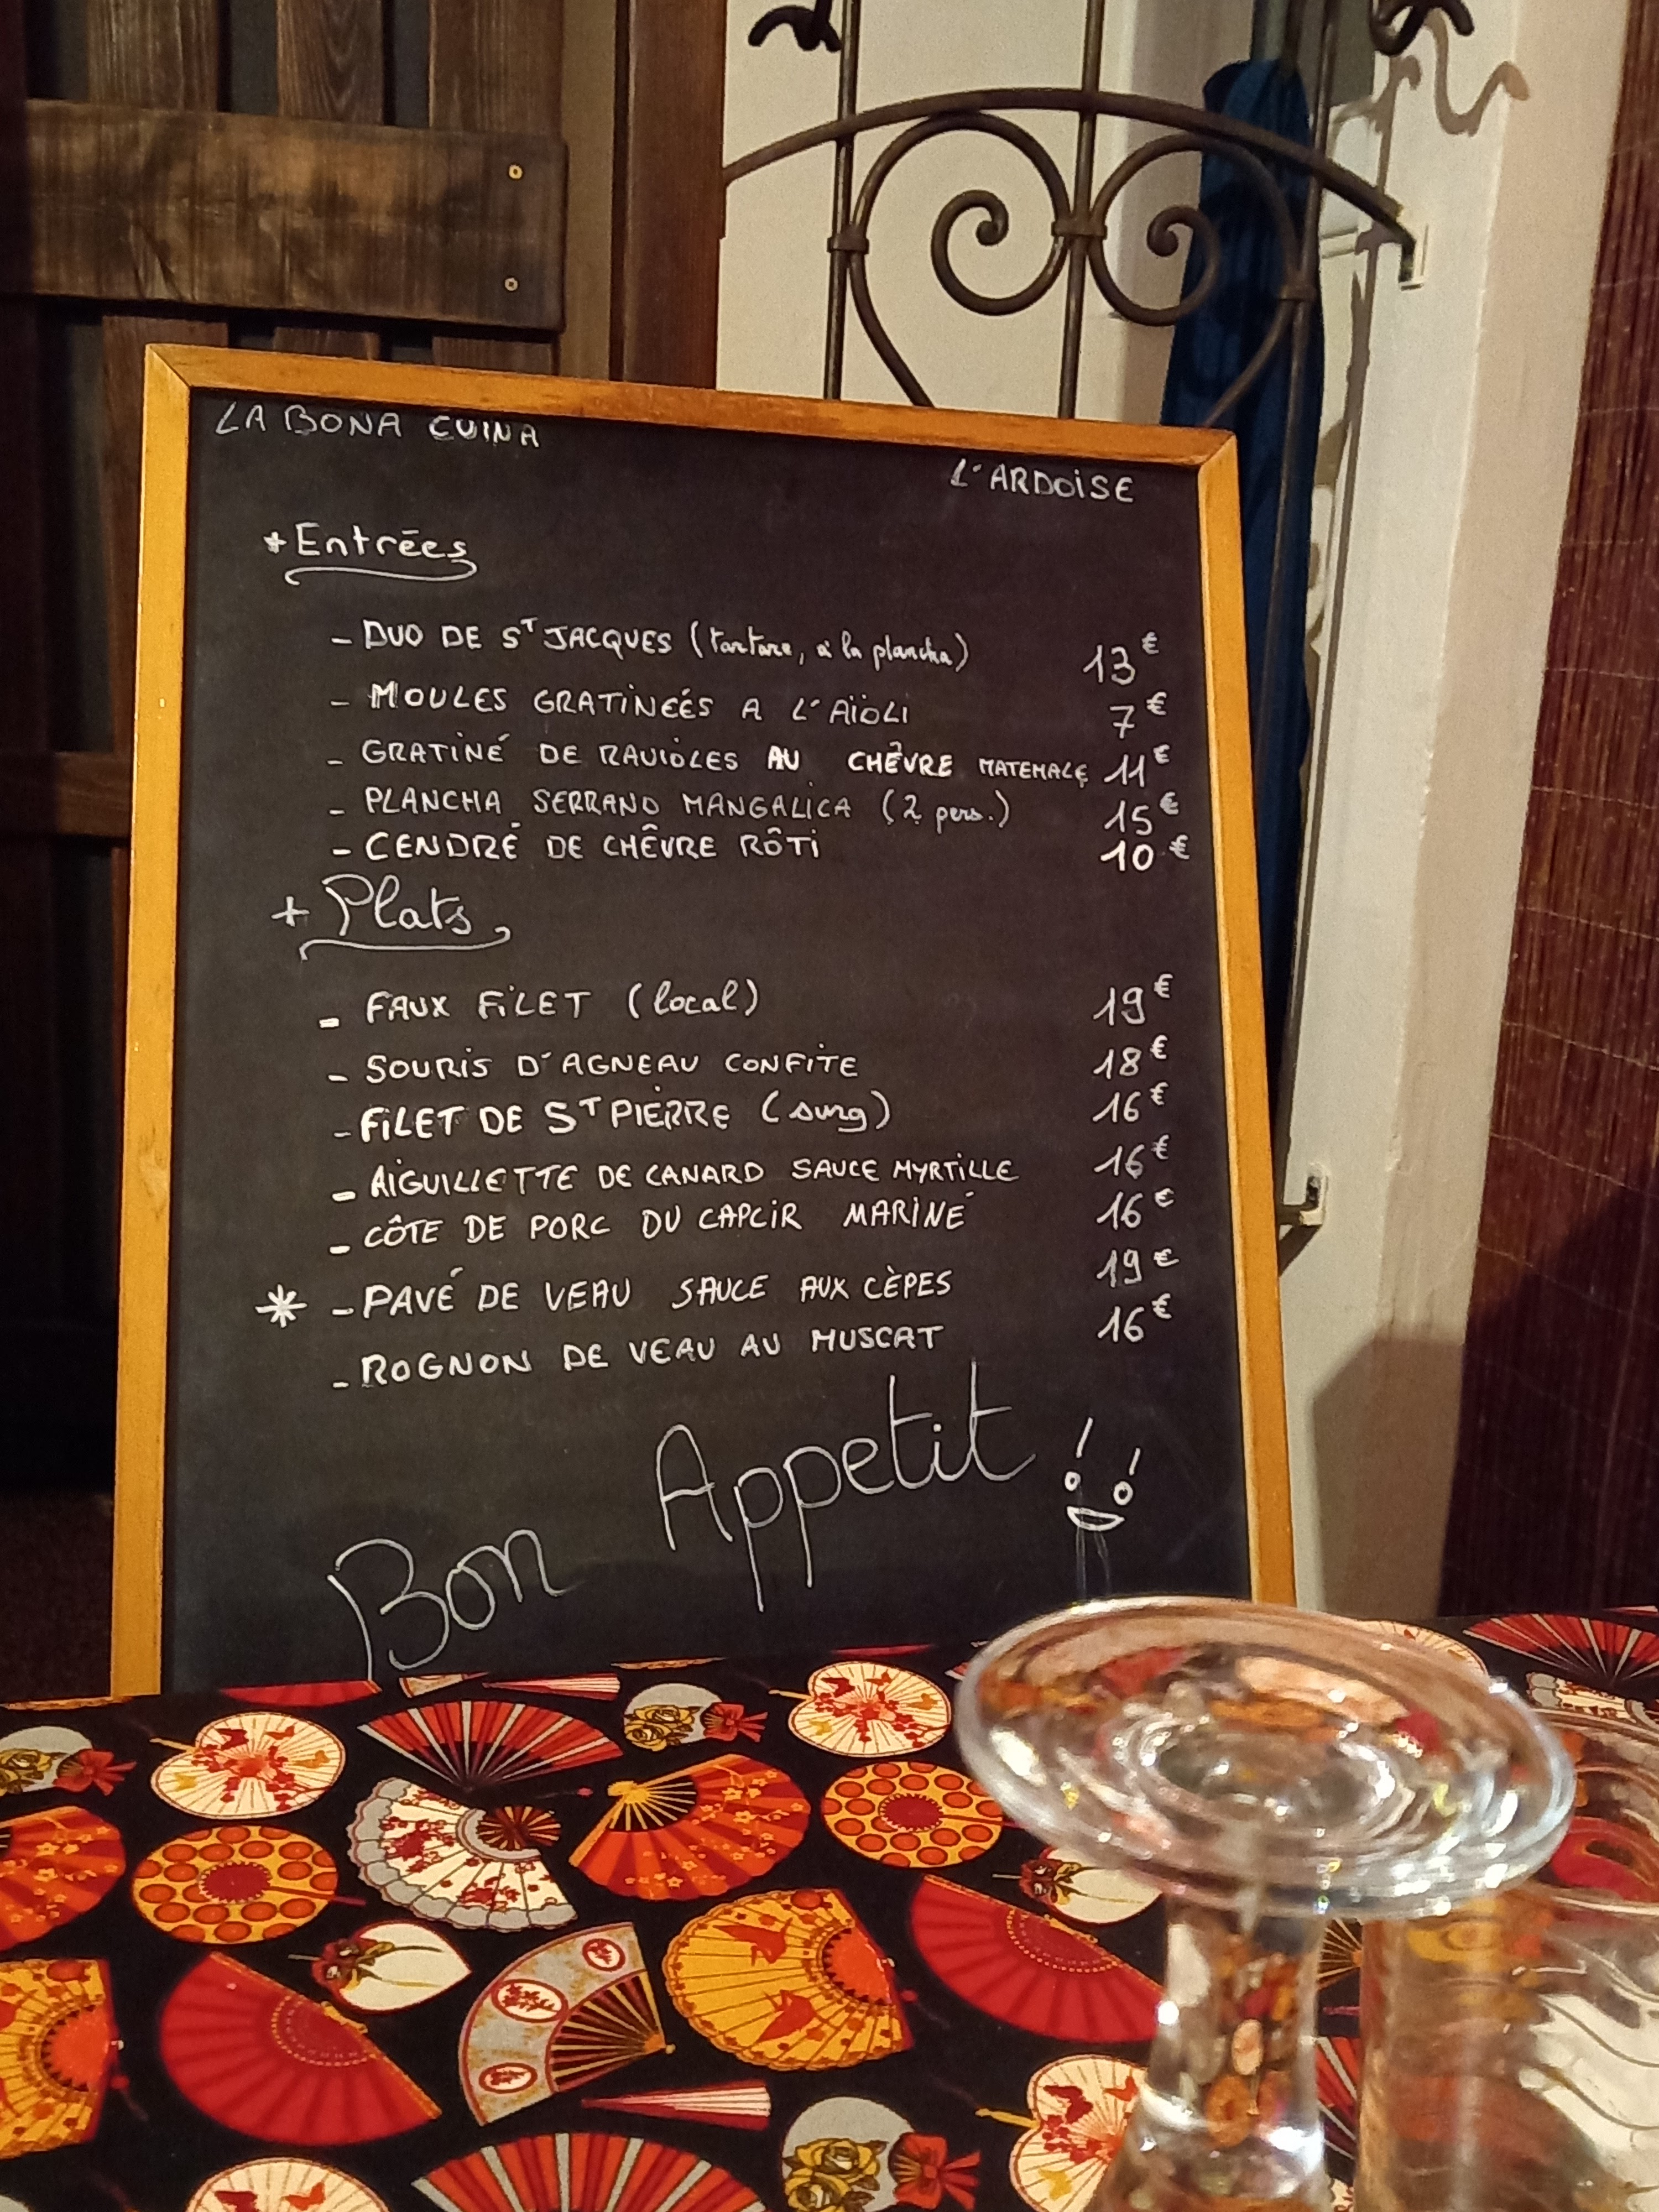 LA BONA CUINA
L'ARDOISE
+ Entrées
- DUO DE ST JACQUES (tartare, à la plancha) 13€
- MOULES GRATINEÉS A L'AÏOLI 7€
- GRATINÉ DE RAVIOLES AU CHÊVRE MATEMALE 11€
- PLANCHA SERRANO MANGALICA (2 pers.) 15€
- CENDRÉ DE CHÊVRE RÔTI 10€
+ Plats
- FAUX FILET (local) 19€
- SOURIS D'AGNEAU CONFITE 18€
- FILET DE ST PIERRE (surg) 16€
- AIGUILLETTE DE CANARD SAUCE MYRTILLE 16€
- CÔTE DE PORC DU CAPCIR MARINÉ 16€
* - PAVÉ DE VEAU SAUCE AUX CÈPES 19€
- ROGNON DE VEAU AU MUSCAT 16€
Bon Appetit !!